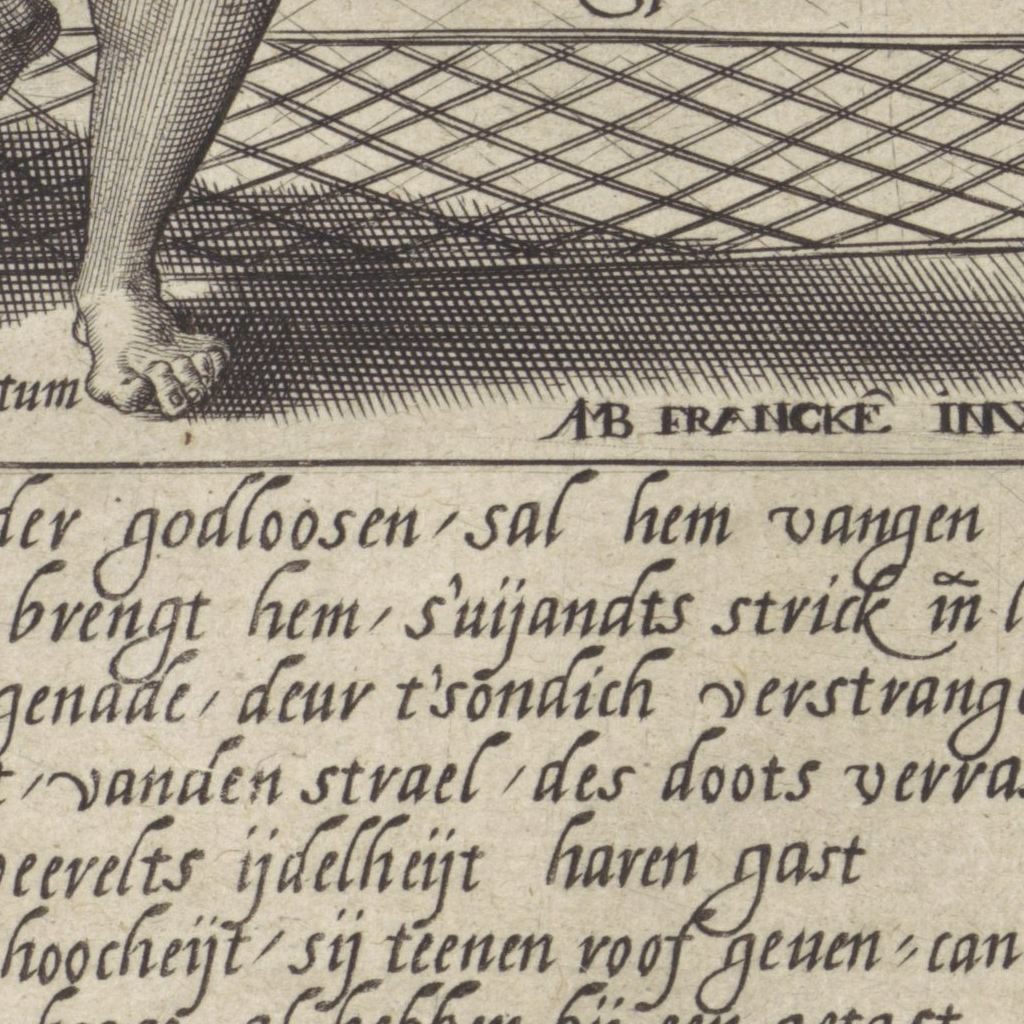 tum
AMB FRANCKE᷃ INV
der godloosen / sal hem vangen
brengt hem / s'uijandts strick in̄ l
genade / deur t'sondich verstrang
t / vanden strael / des doots verra
eerelts ijdelheijt haren gast
hoocheijt / sij teenen roof geuen / can
al hebben bij een getast